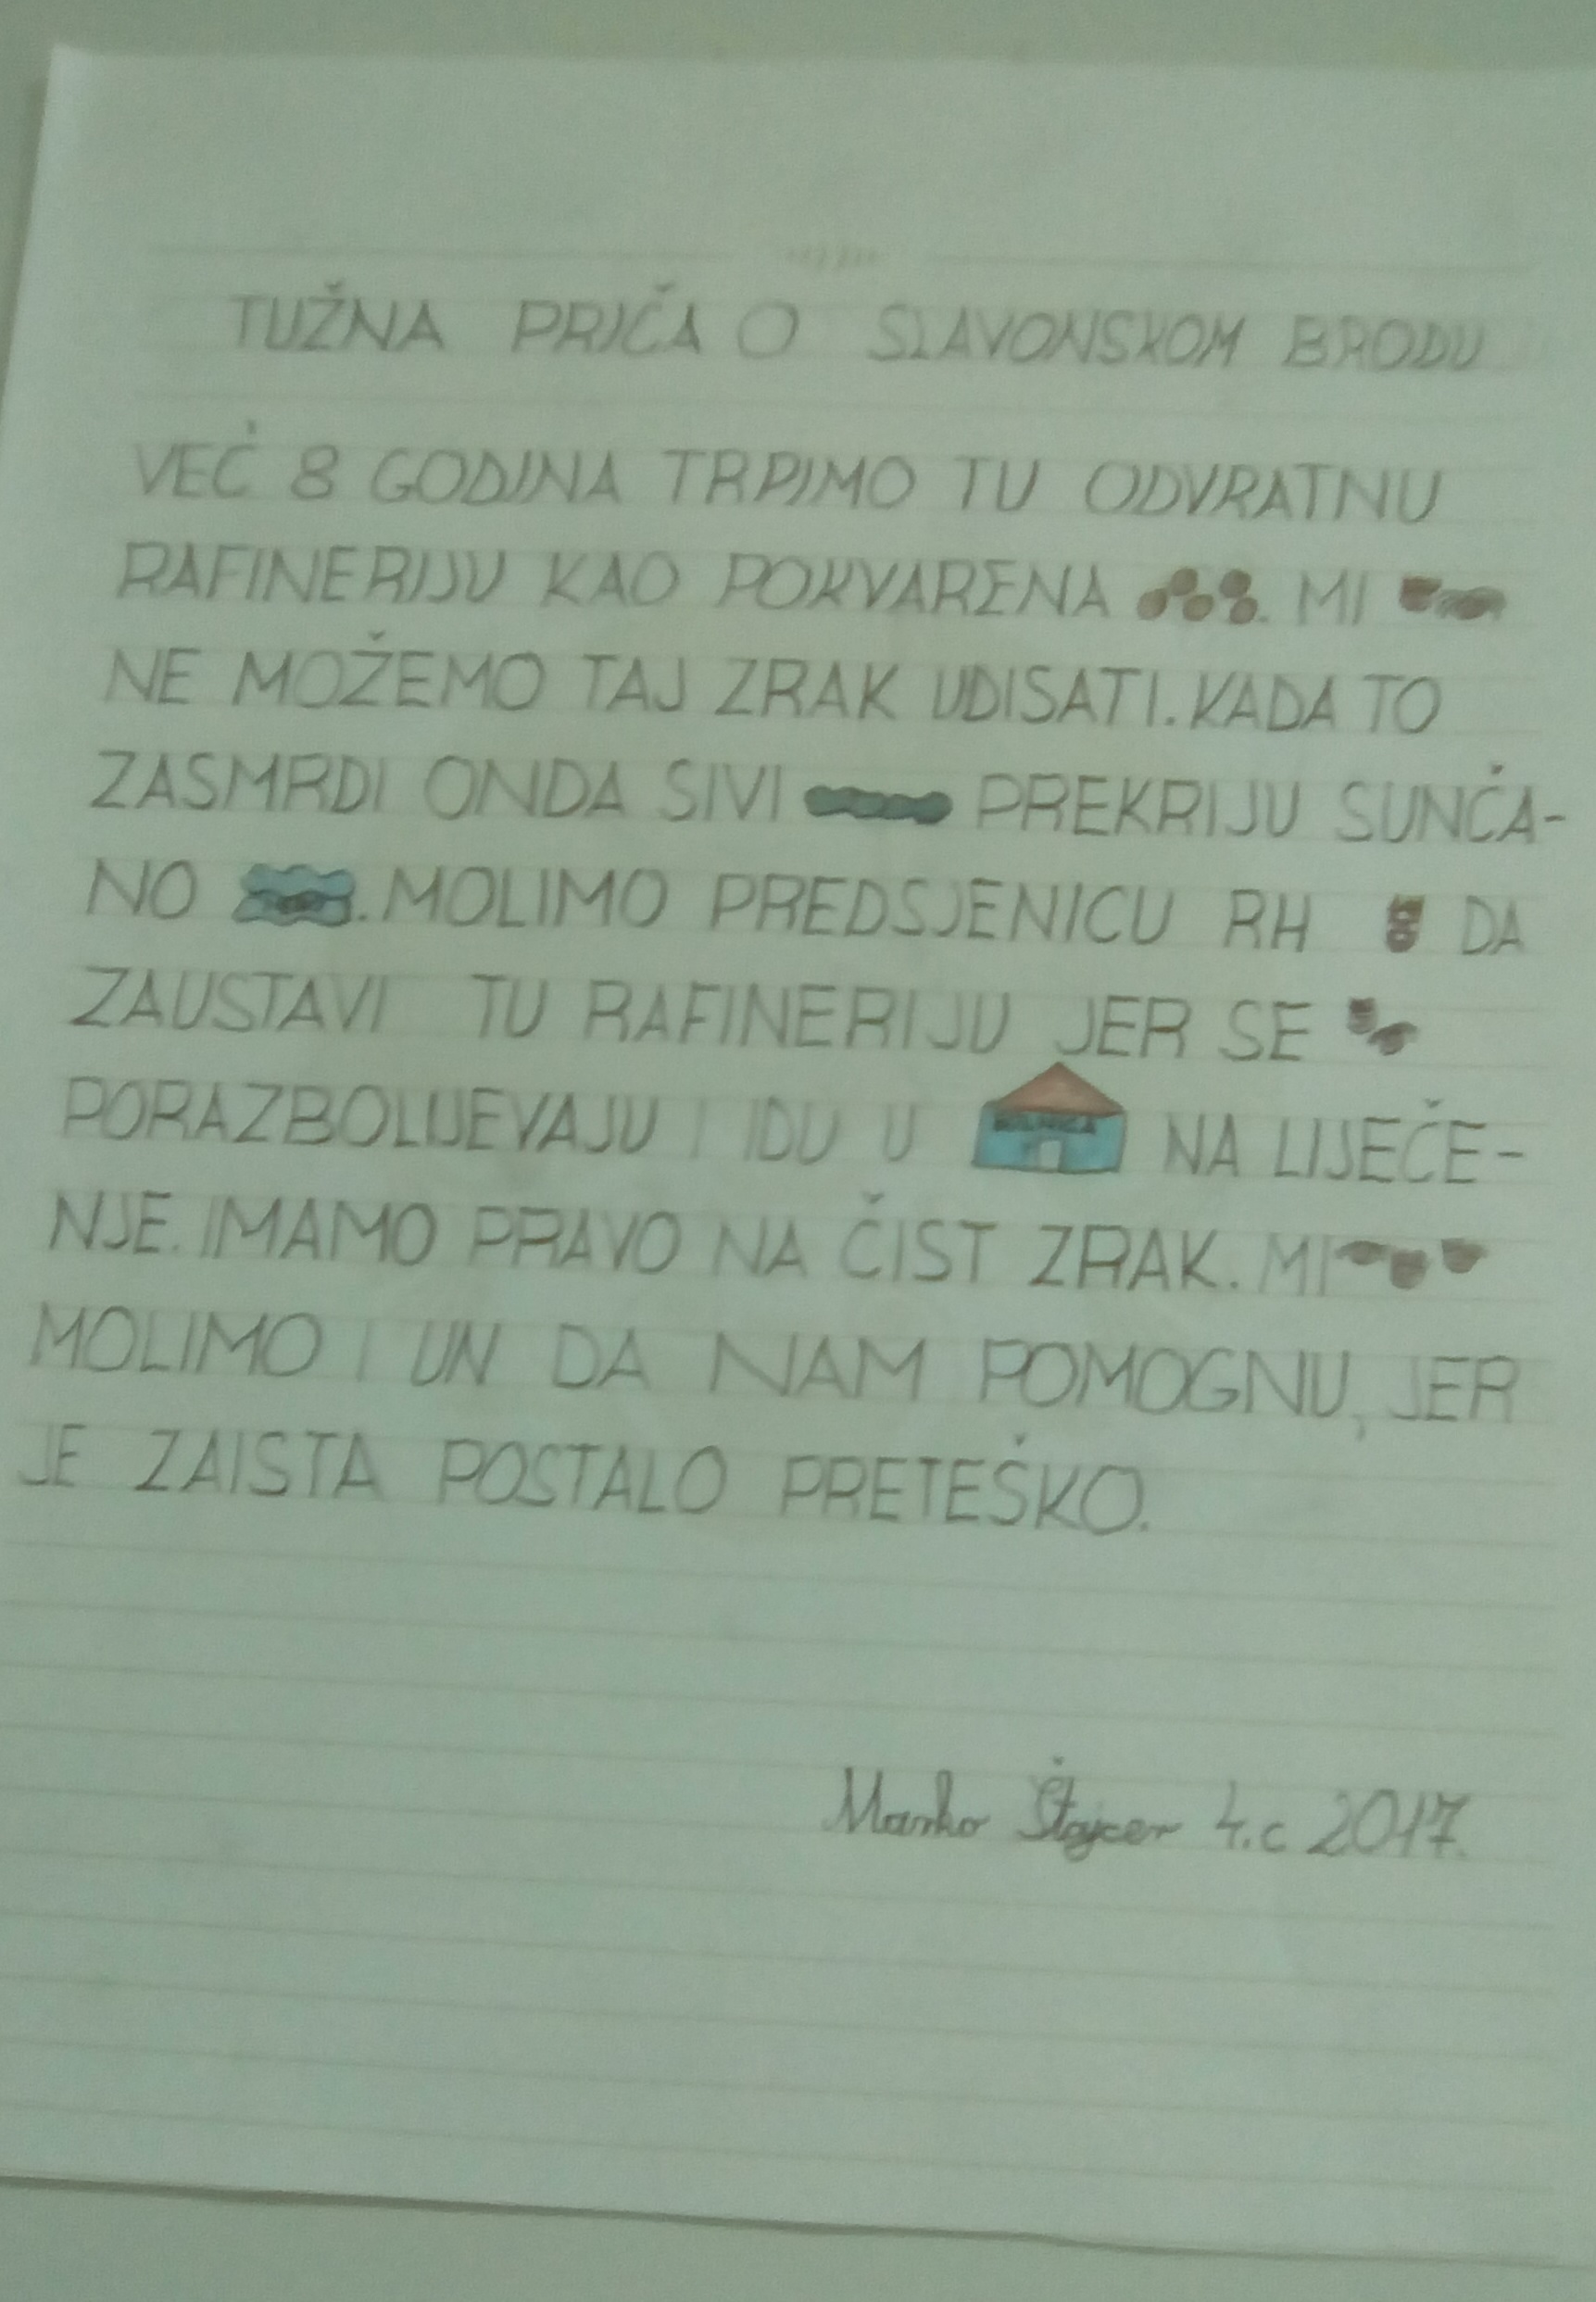 TUŽNA PRIČA O SLAVONSKOM BRODU
VEĆ 8 GODINA TRPIMO TU ODVRATNU
RAFINERIJU KAO POKVARENA . MI
NE MOŽEMO TAJ ZRAK UDISATI. KADA TO
ZASMRDI ONDA SIVI PREKRIJU SUNČA-
NO . MOLIMO PREDSJENICU RH DA
ZAUSTAVI TU RAFINERIJU JER SE
PORAZBOLIJEVAJU I IDU U BOLNICA NA LIJEČE-
NJE. IMAMO PRAVO NA ČIST ZRAK. MI
MOLIMO I UN DA NAM POMOGNU, JER
JE ZAISTA POSTALO PRETEŠKO.
Marko Štajcer 4.c 2017.